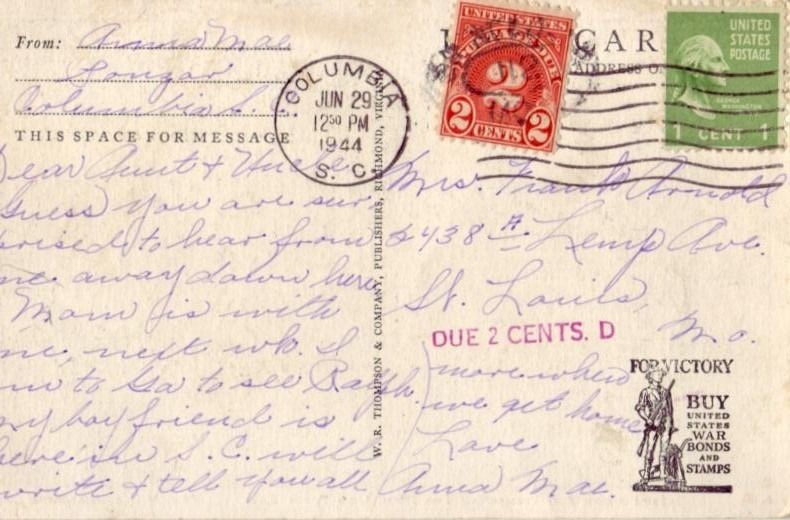 From: Anna Mae
Columbia S.C.
THIS SPACE FOR MESSAGE
Dear Aunt & Uncle
Guess you are sur
prised to hear from
me away down here
Mom is with
me, next wk. I
am to Ga to see Ralph.
my boyfriend is
here in S.C. will
write & tell you all
more when
we get home
Love
Anna Mae.
COLUMBIA
JUN 29
12 50 PM
1944
S. C.
W. R. THOMPSON & COMPANY, PUBLISHERS, RICHMOND, VIRGINIA
UNITED STATES
POSTAGE DUE
2
2 CENTS 2
CAR
ADDRESS O
UNITED
STATES
POSTAGE
GEORGE WASHINGTON
1 CENT 1
Mrs. Frank Arnold
2438 A Lemp Ave.
St. Louis,
Mo.
DUE 2 CENTS. D
FOR VICTORY
BUY
UNITED
STATES
WAR
BONDS
AND
STAMPS